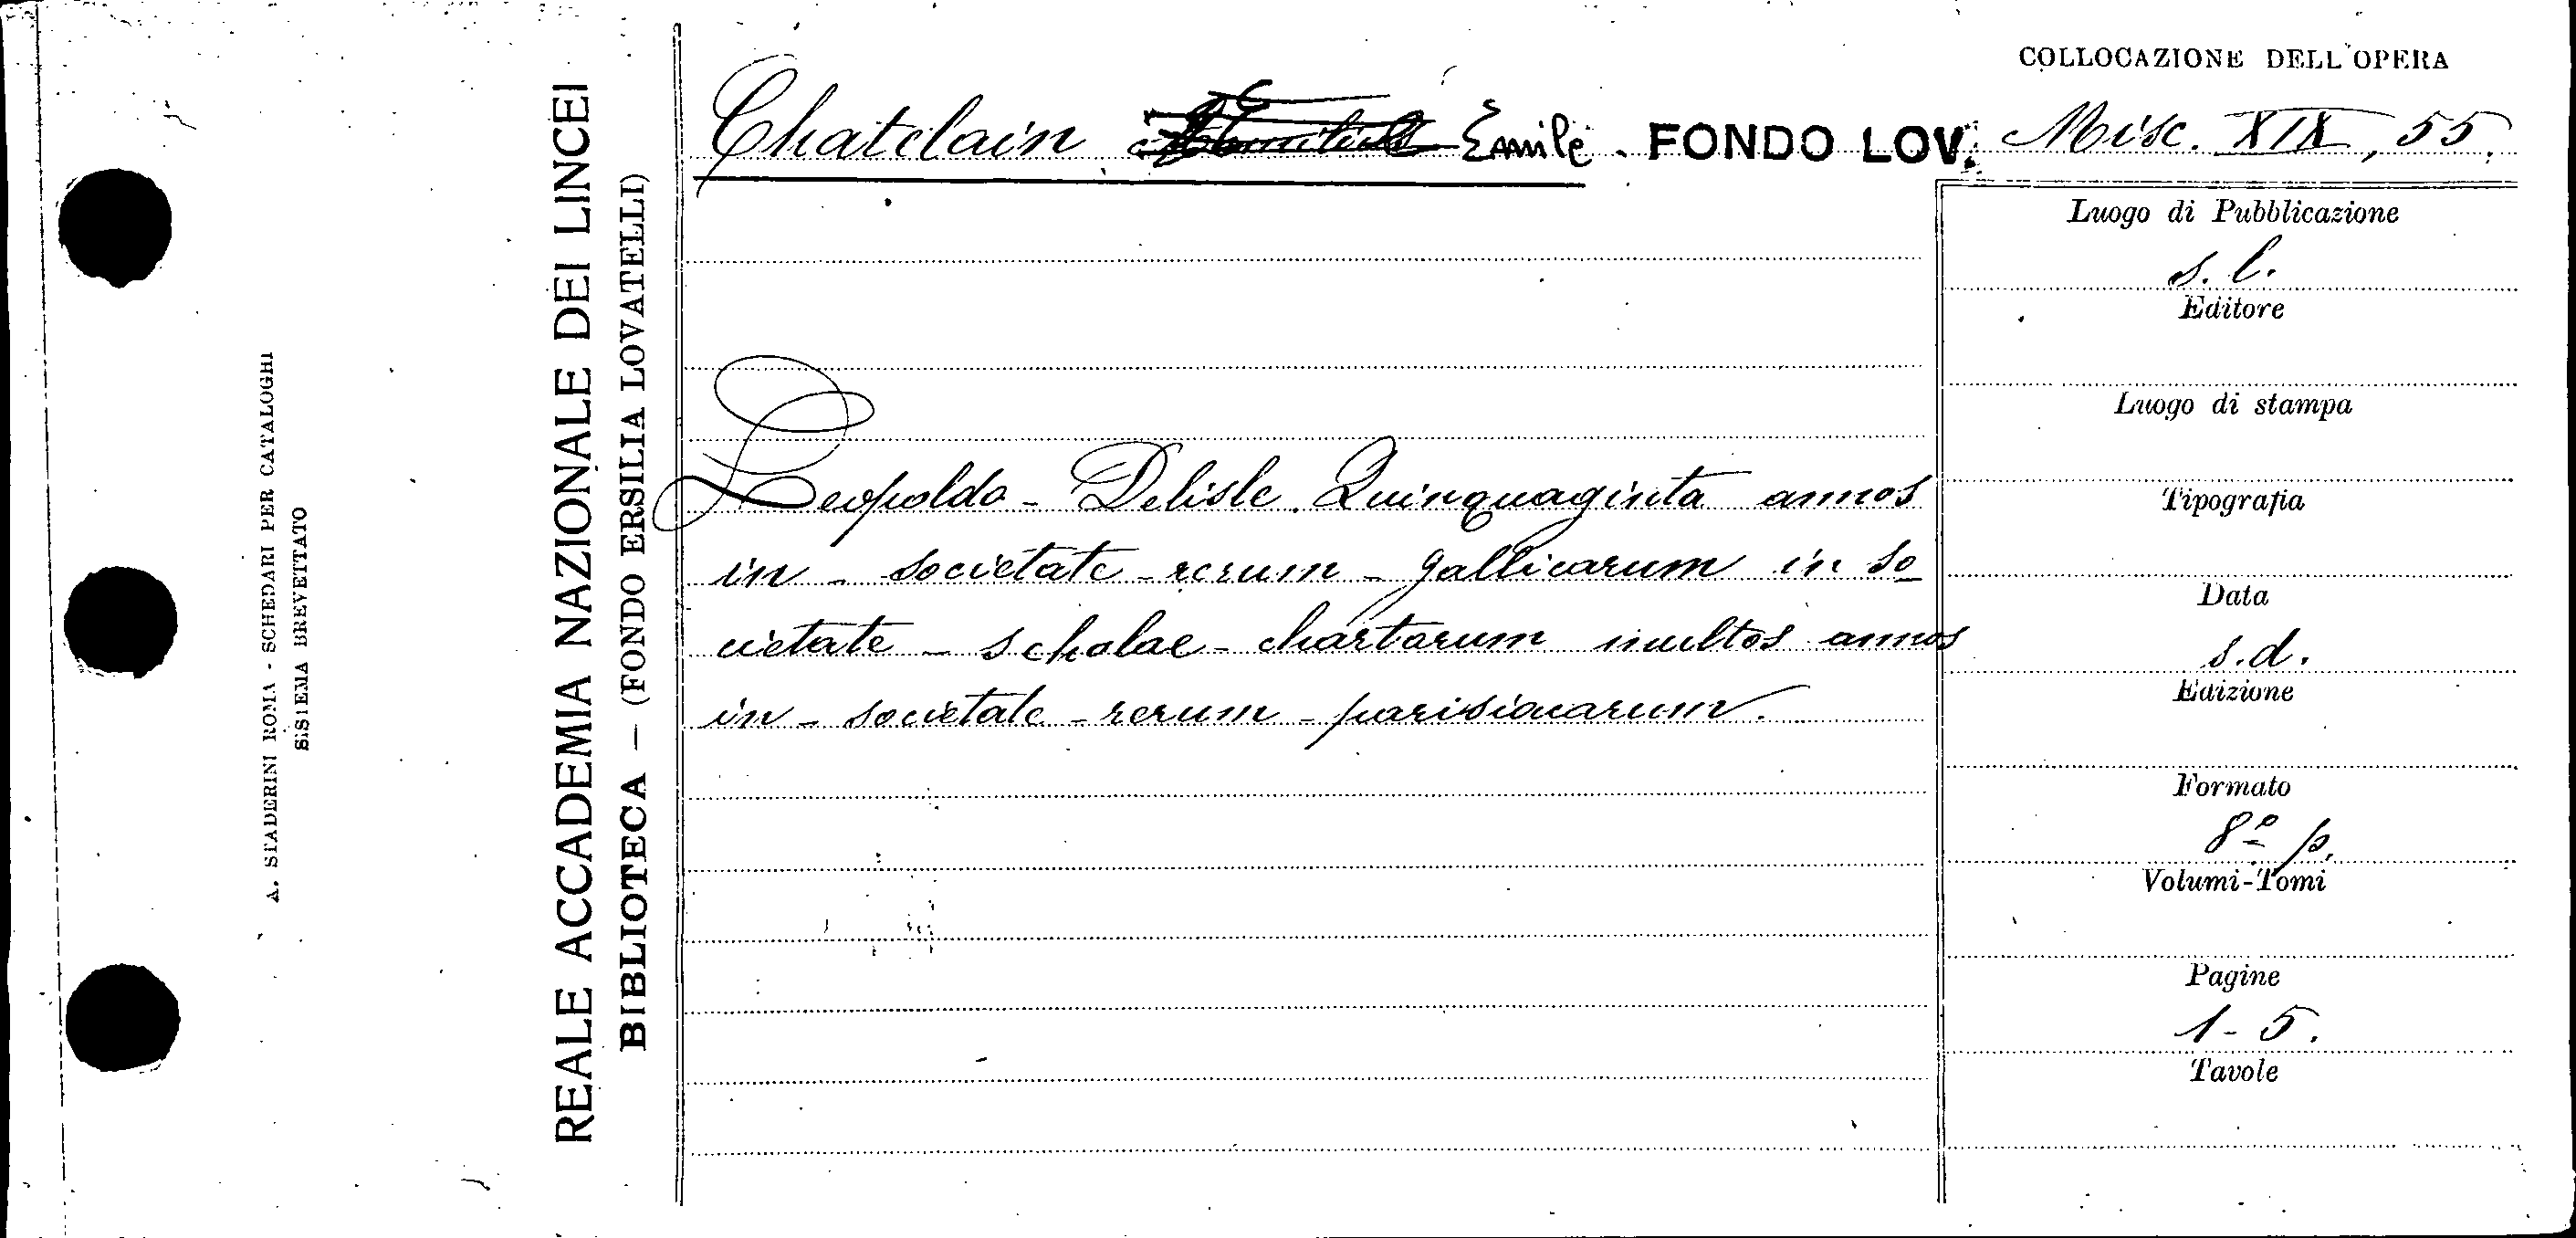 A. STADERINI ROMA - SCHEDARI PER CATALOGHI
SISTEMA BREVETTATO
REALE ACCADEMIA NAZIONALE DEI LINCEI
BIBLIOTECA — (FONDO ERSILIA LOVATELLI)
COLLOCAZIONE DELL'OPERA
Chatelain Emile. FONDO LOV. Misc. XIX, 55.
Leopoldo - Delisle. Quinquaginta annos
in - societate - rerum - gallicarum in so
cietate - scholae - chartarum multos annos
in - societate - rerum - parisiacarum.
Luogo di Pubblicazione
s. l.
Editore
Luogo di stampa
Tipografia
Data
s. d.
Edizione
Formato
8º p.
Volumi-Tomi
Pagine
1 - 5.
Tavole